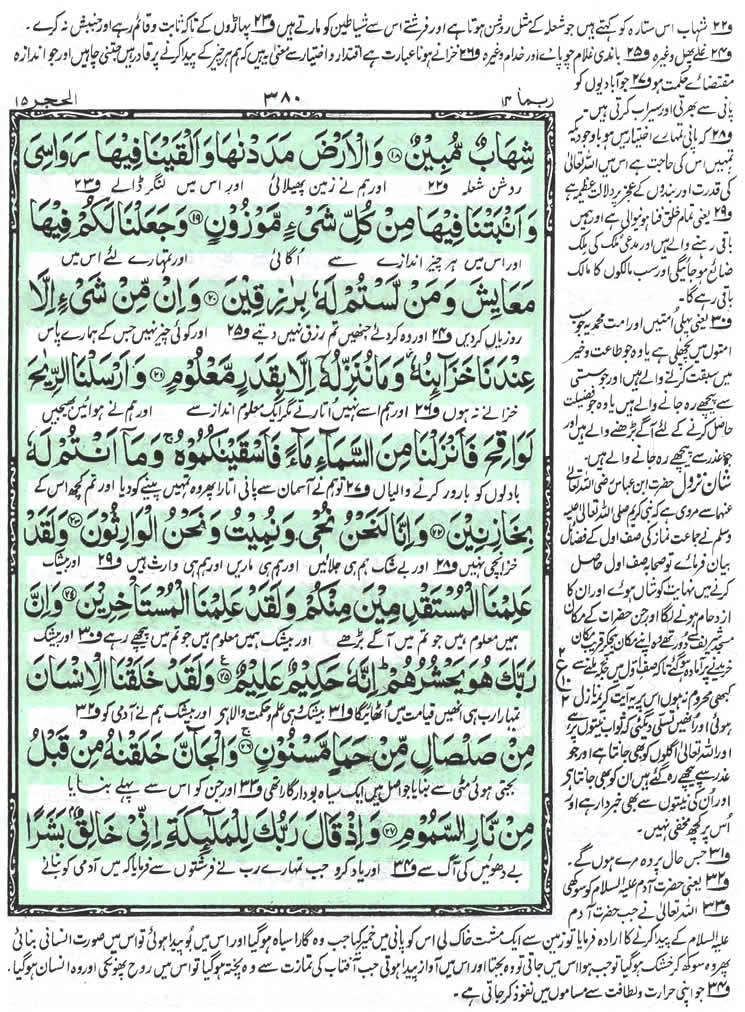 ف۲۲ شہاب اس ستارہ کو کہتے ہیں جو شعلہ کے مثل روشن ہوتا ہے اور فرشتے اس سے شیاطین کو مارتے ہیں ف۲۳ پہاڑوں کے تاکہ ثابت و قائم رہے اور جنبش نہ کرے۔
ف۲۴ غلے پھل وغیرہ ف۲۵ باندی غلام چوپائے اور خدام وغیرہ ف۲۶ خزانے ہونا عبارت ہے اقتدار و اختیار سے معنیٰ یہ ہیں کہ ہم ہر چیز کے پیدا کرنے پر قادر ہیں جتنی چاہیں اور جو اندازہ
مقتضائے حکمت ہو ف۲۷ جو آبادیوں کو
پانی سے بھرتی اور سیراب کرتی ہیں۔
ف۲۸ کہ پانی تمہارے اختیار میں ہو باوجودیکہ
تمہیں اس کی حاجت ہے اس میں اللہ تعالیٰ
کی قدرت اور بندوں کے عجز پر دلالت عظیمہ ہے
ف۲۹ یعنی تمام خلق فنا ہونے والی ہے اور ہمیں
باقی رہنے والے ہیں اور مدعی ملک کی ملک
ضائع ہو جائیگی اور سب مالکوں کا مالک
باقی رہے گا
ف۳۰ یعنی پہلی امتیں اور امت محمدیہ جو سب
امتوں میں پچھلی ہے یا وہ جو طاعت و خیر
میں سبقت کرنے والے ہیں اور جو سستی
سے پیچھے رہ جانے والے ہیں یا وہ جو فضیلت
حاصل کرنے کے لئے آگے بڑھنے والے ہیں اور
جو عذر سے پیچھے رہ جانے والے ہیں۔
شان نزول حضرت ابن عباس رضی اللہ تعالیٰ
عنہما سے مروی ہے کہ نبی کریم صلی اللہ تعالیٰ علیہ
وسلم نے جماعت نماز کی صف اول کے فضائل
بیان فرمائے تو صحابہ صف اول حاصل
کرنے میں نہایت کوشاں ہوئے اور ان کا
ازدحام ہونے لگا اور جن حضرات کے مکان
مسجد شریف سے دور تھے وہ اپنے مکان بیچ کر قریب مکان
خریدنے پر آمادہ ہو گئے تاکہ صف اول میں جگہ ملنے سے
کبھی محروم نہ ہوں اس پر یہ آیت کریمہ نازل
ہوئی اور انہیں تسلی دی گئی کہ ثواب نیتوں پر ہے
اور اللہ تعالیٰ اگلوں کو بھی جانتا ہے اور جو
عذر سے پیچھے رہ گئے ہیں ان کو بھی جانتا ہے
اور ان کی نیتوں سے بھی خبردار ہے اور
اس پر کچھ مخفی نہیں۔
ف۳۱ جس حال پر وہ مرے ہوں گے۔
ف۳۲ یعنی حضرت آدم علیہ السلام کو سوکھی
ف۳۳ اللہ تعالیٰ نے جب حضرت آدم
ربما ۱۴
۳۸۰
الحجر ۱۵
شِهَابٌ مُّبِيْنٌ ۝۱۸ وَالْاَرْضَ مَدَدْنٰهَا وَاَلْقَيْنَا فِيْهَا رَوَاسِيَ
روشن شعلہ ف۲۲ اور ہم نے زمین پھیلائی اور اس میں لنگر ڈالے ف۲۳
وَاَنْۢبَتْنَا فِيْهَا مِنْ كُلِّ شَيْءٍ مَّوْزُوْنٍ ۝۱۹ وَجَعَلْنَا لَكُمْ فِيْهَا
اور اس میں ہر چیز اندازے سے اگائی اور تمہارے لئے اس میں
مَعَايِشَ وَمَنْ لَّسْتُمْ لَهٗ بِرٰزِقِيْنَ ۝۲۰ وَاِنْ مِّنْ شَيْءٍ اِلَّا
روزیاں کردیں ف۲۴ اور وہ کردئے جنھیں تم رزق نہیں دیتے ف۲۵ اور کوئی چیز نہیں جس کے ہمارے پاس
عِنْدَنَا خَزَآئِنُهٗ وَمَا نُنَزِّلُهٗٓ اِلَّا بِقَدَرٍ مَّعْلُوْمٍ ۝۲۱ وَاَرْسَلْنَا الرِّيٰحَ
خزانے نہ ہوں ف۲۶ اور ہم اسے نہیں اتارتے مگر ایک معلوم اندازے سے اور ہم نے ہوائیں بھیجیں
لَوَاقِحَ فَاَنْزَلْنَا مِنَ السَّمَآءِ مَآءً فَاَسْقَيْنٰكُمُوْهُ ۚ وَمَآ اَنْتُمْ لَهٗ
بادلوں کو بارور کرنے والیاں ف۲۷ تو ہم نے آسمان سے پانی اتارا پھر وہ تمہیں پینے کو دیا اور تم کچھ اس کے
بِخٰزِنِيْنَ ۝۲۲ وَاِنَّا لَنَحْنُ نُحْيٖ وَنُمِيْتُ وَنَحْنُ الْوَارِثُوْنَ ۝۲۳ وَلَقَدْ
خزانچی نہیں ف۲۸ اور بے شک ہم ہی جلائیں اور ہم ہی ماریں اور ہم ہی وارث ہیں ف۲۹ اور بیشک
عَلِمْنَا الْمُسْتَقْدِمِيْنَ مِنْكُمْ وَلَقَدْ عَلِمْنَا الْمُسْتَاْخِرِيْنَ ۝۲۴ وَاِنَّ
ہمیں معلوم ہیں جو تم میں آگے بڑھے اور بیشک ہمیں معلوم ہیں جو تم میں پیچھے رہے ف۳۰ اور بیشک
رَبَّكَ هُوَ يَحْشُرُهُمْ ۭ اِنَّهٗ حَكِيْمٌ عَلِيْمٌ ۝۲۵ وَلَقَدْ خَلَقْنَا الْاِنْسَانَ
تمہارا رب ہی انہیں قیامت میں اٹھائیگا ف۳۱ بیشک وہی علم و حکمت والا ہے اور بیشک ہم نے آدمی کو ف۳۲
مِنْ صَلْصَالٍ مِّنْ حَمَاٍ مَّسْنُوْنٍ ۝۲۶ وَالْجَآنَّ خَلَقْنٰهُ مِنْ قَبْلُ
بجتی ہوئی مٹی سے بنایا جو اصل میں ایک سیاہ بودار گارا تھی ف۳۳ اور جن کو اس سے پہلے بنایا
مِنْ نَّارِ السَّمُوْمِ ۝۲۷ وَاِذْ قَالَ رَبُّكَ لِلْمَلٰٓئِكَةِ اِنِّيْ خَالِقٌۢ بَشَرًا
بے دھوئیں کی آگ سے ف۳۴ اور یاد کرو جب تمہارے رب نے فرشتوں سے فرمایا کہ میں آدمی کو بنانے
علیہ السلام کے پیدا کرنے کا ارادہ فرمایا تو زمین سے ایک مشت خاک لی اس کو پانی میں خمیر کیا جب وہ گارا سیاہ ہو گیا اور اس میں بو پیدا ہوئی تو اس میں صورت انسانی بنائی
پھر وہ سوکھ کر خشک ہو گیا تو جب ہوا اس میں جاتی تو وہ بجتا اور اس میں آواز پیدا ہوتی جب آفتاب کی تمازت سے وہ پختہ ہو گیا تو اس میں روح پھونکی اور وہ انسان ہو گیا۔
ف۳۴ جو اپنی حرارت و لطافت سے مساموں میں نفوذ کر جاتی ہے۔